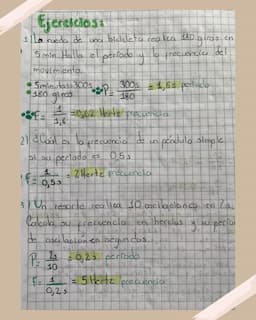 Ejercicios:
1) La rueda de una bicicleta realiza 180 giros en
5 min. Halla el período y la frecuencia del
movimiento.
5 minutos = 300s
180 giros P= 300s/180 = 1,6s período
F= 1/1,6 = 0,62 Hertz frecuencia
2) Cuál es la frecuencia de un péndulo simple
si su período es 0,5s
F= 1/0,5s = 2 Hertz frecuencia
3) Un resorte realiza 10 oscilaciones en 2s
Calcula su frecuencia en hertz y su período
de oscilación en segundos.
P= 2s/10 = 0,2s período
F= 1/0,2s = 5 Hertz frecuencia